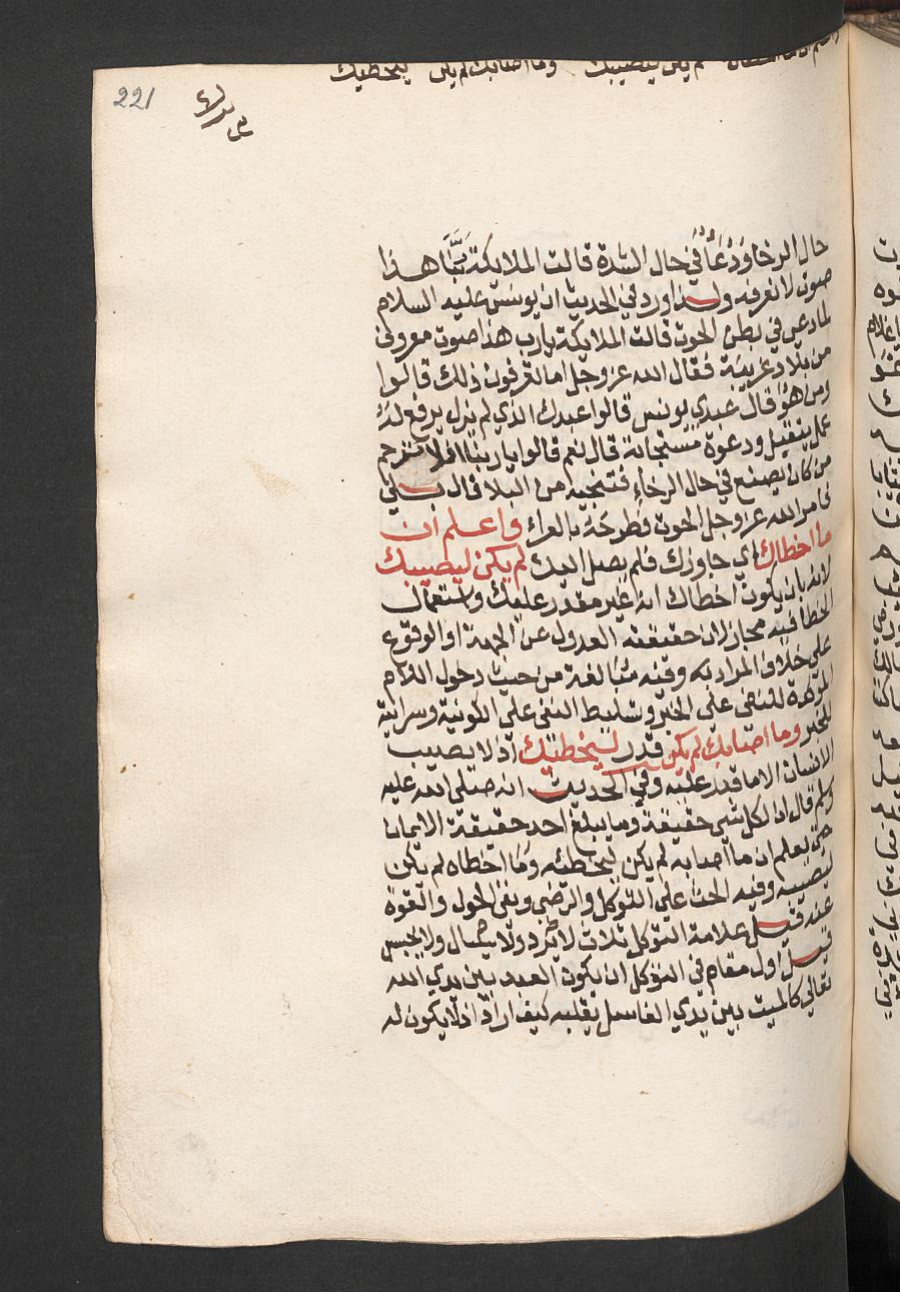 واعلم ان ما اخطاك لم يكن ليصيبك وما اصابك لم يكن ليخطيك
221
حال الرخا ودعا في حال الشدة قالت الملايكة ربنا هذا
صوت لا نعرفه ولهذا ورد في الحديث ان يونس عليه السلام
لما دعى في بطن الحوت قالت الملايكة يا رب هذا صوت معروف
من بلاد غريبة فقال الله عز وجل اما تعرفون ذلك قالوا
ومن هو قال عبدي يونس قالوا عبدك الذي لم يزل يرفع له
عمل يتقبل ودعوة مستجابة قال نعم قالوا يا ربنا افلا ترحم
من كان يصنع في حال الرخاء فتنجيه من البلا قال بلى
فامر الله عز وجل الحوت فطرحه بالعراء واعلم ان
ما اخطاك اي جاوزك فلم يصل اليك لم يكن ليصيبك
لانه بان يكون اخطاك انه غير مقدر عليك واستعمال
الخطا فيه مجاز لان حقيقته العدول عن الجهة او الوقوع
على خلاف المراد به وفيه مبالغة من حيث دخول اللام
المؤكدة للنفي على الخبر وتسليط النفي على الكونية وسرايته
للخبر وما اصابك لم يكن قدر ليخطيك اذ لا يصيب
الانسان الا ما قدر عليه وفي الحديث انه صلى الله عليه
وسلم قال ان لكل شي حقيقة وما يبلغ احد حقيقة الايمان
حتى يعلم ان ما اصابه لم يكن ليخطئه وما اخطاه لم يكن
ليصيبه وفيه الحث على التوكل والرضى ونفي الحول والقوة
عنه قيل علامة التوكل ثلاث لا يرد ولا يسال ولا يحبس
قيل اول مقام في التوكل ان يكون العبد بين يدي الله
تعالى كالميت بين يدي الغاسل يقلبه كيف اراد اذ لا يكون له